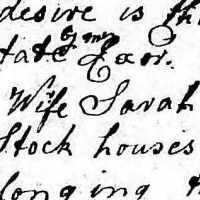 desire is th
tate of my Exor.
Wife Sarah
Stock houses
longing